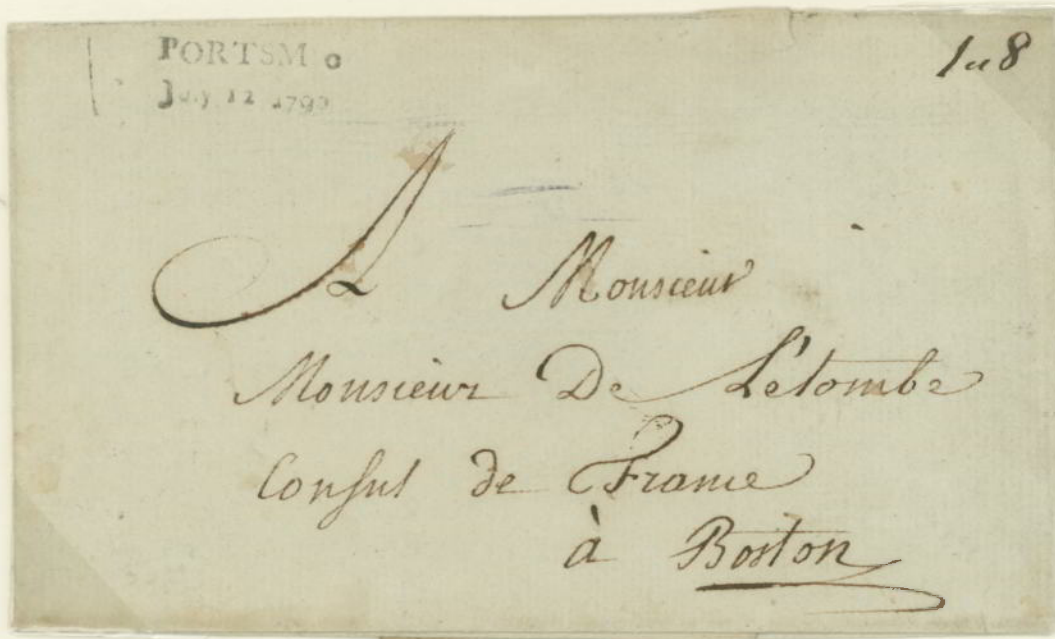 PORTSMo
July 12 1790
1 u 8
A Monsieur
Monsieur De Létombe
Consul de France
à Boston